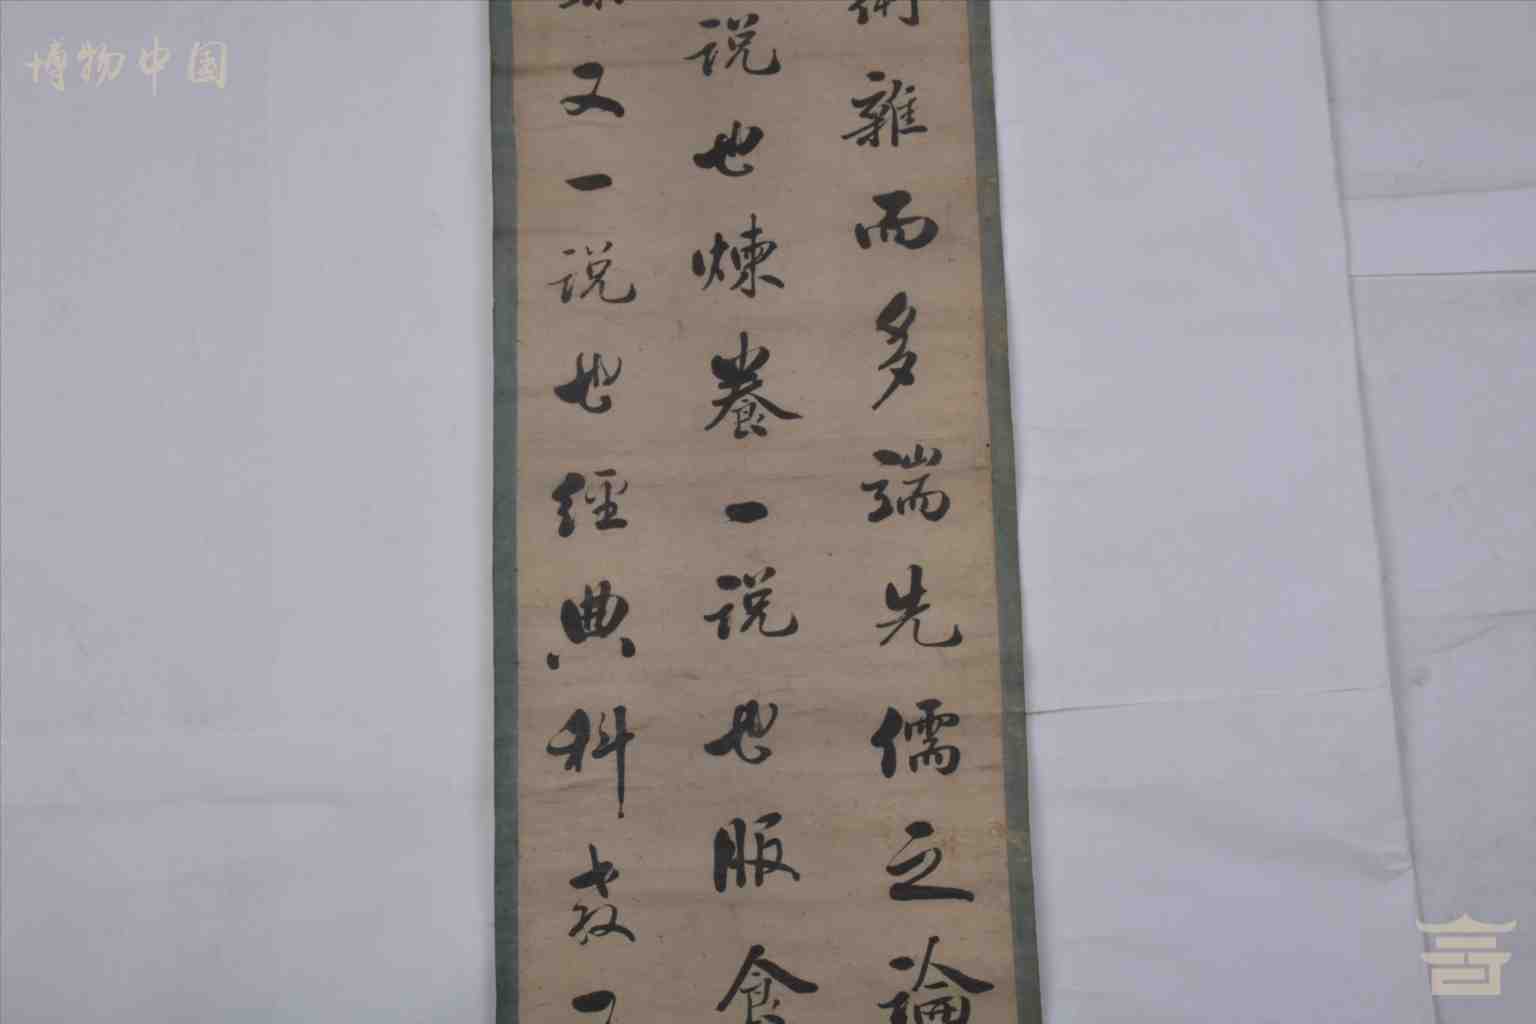 博物中国
雜而多端先儒之論
説也煉養一説也服食
又一説也經典科教